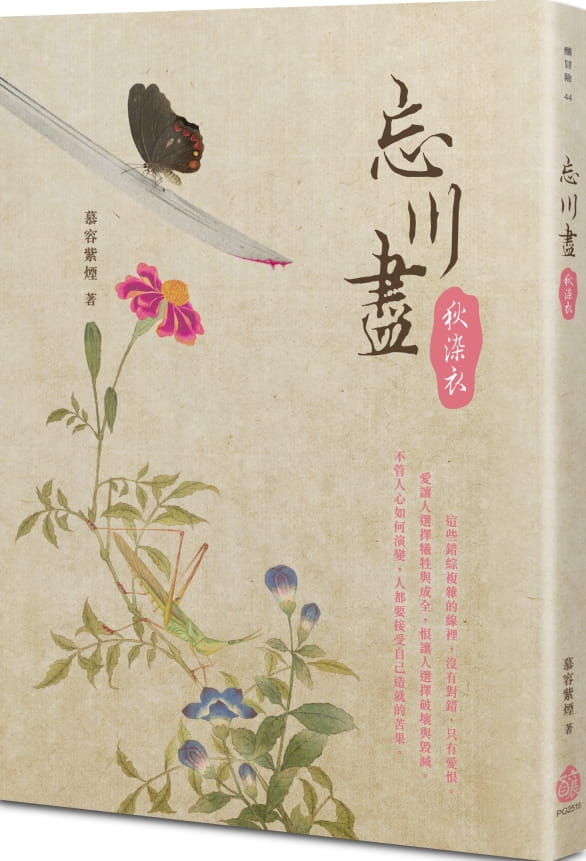 忘川盡
秋染衣
慕容紫煙 著
這些錯綜複雜的線裡，沒有對錯、只有愛恨。
愛讓人選擇犧牲與成全，恨讓人選擇破壞與毀滅。
不管人心如何演變，人都要接受自己造就的苦果。
釀冒險 44
忘川盡
秋染衣
慕容紫煙 著
釀
PG2518